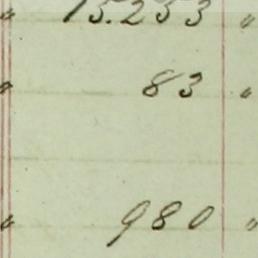 " 15.253 "
" 83 "
" 980 "